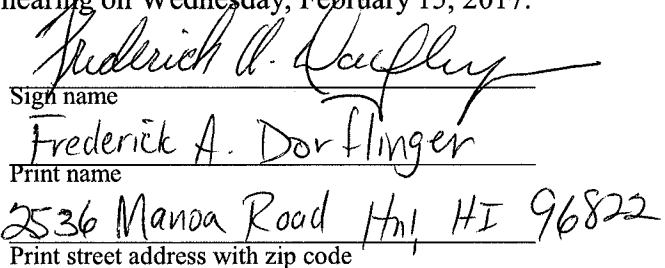 hearing on Wednesday, February 15, 2017.
Frederick A. Dorflinger
Sign name
Frederick A. Dorflinger
Print name
2536 Manoa Road Hnl, HI 96822
Print street address with zip code